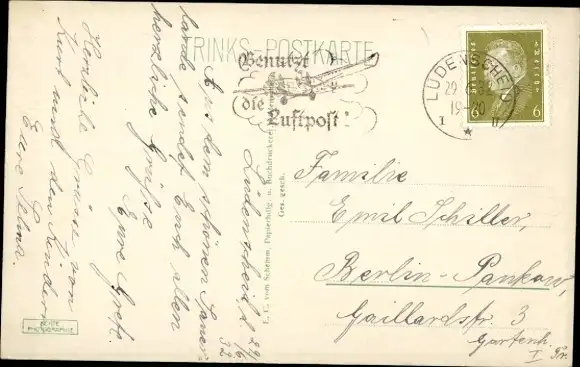 RINKS-POSTKARTE
Benutzt
die
Luftpost!
LÜDENSCHEID
29.6.32
19-20
I
II
6
6
Lüdenscheid, d. 29/6. 32
Aus dem schönen Sauer-
lande sendet Euch allen
herzliche Grüsse
Eure Grete.
Herzliche Grüsse von
Kurt und den Kindern
Eure Selma.
L. C. vom Schemm, Papierhdlg. u. Buchdruckerei
Ges. gesch.
Familie
Emil Schiller,
Berlin-Pankow,
Gaillardstr. 3
Gartenh.
I Tr.
ECHTE
PHOTOGRAPHIE